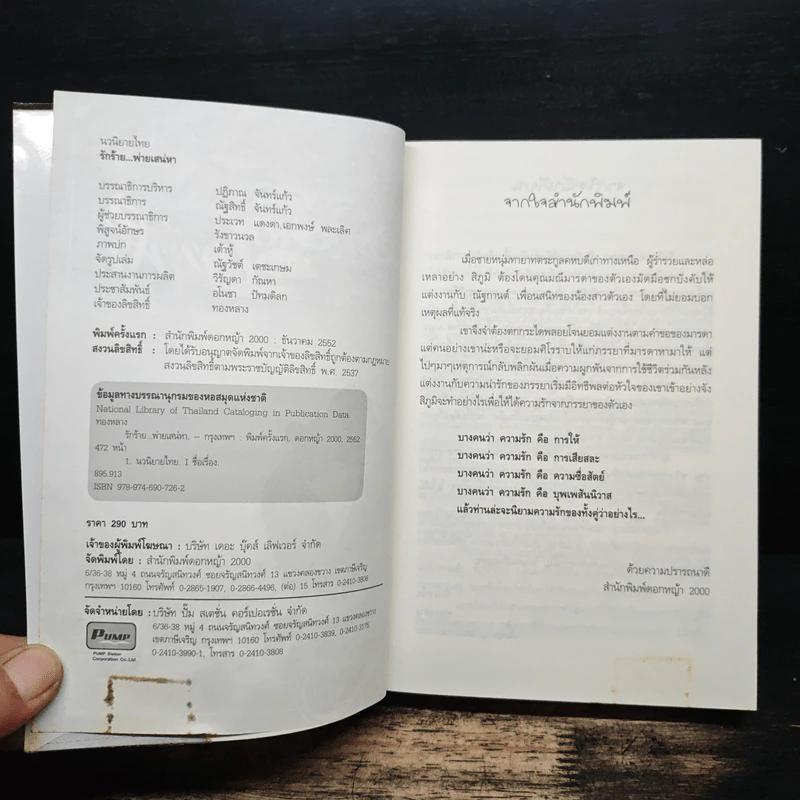 นวนิยายไทย
รักร้าย...พ่ายเสน่หา
บรรณาธิการบริหาร ปฏิภาณ จันทร์แก้ว
บรรณาธิการ ณัฐสิทธิ์ จันทร์แก้ว
ผู้ช่วยบรรณาธิการ ประเวท แดงดา,เอกพงษ์ พละเลิศ
พิสูจน์อักษร รังขาวนวล
ภาพปก เต้าหู้
จัดรูปเล่ม ณัฐวัชต์ เตชะเกษม
ประสานงานการผลิต วิรัญดา กัณหา
ประชาสัมพันธ์ อโนชา ปัทมดิลก
เจ้าของลิขสิทธิ์ ทองหลาง
พิมพ์ครั้งแรก : สำนักพิมพ์ดอกหญ้า 2000 : ธันวาคม 2552
สงวนลิขสิทธิ์ : โดยได้รับอนุญาตจัดพิมพ์จากเจ้าของลิขสิทธิ์ถูกต้องตามกฎหมาย
สงวนลิขสิทธิ์ตามพระราชบัญญัติลิขสิทธิ์ พ.ศ. 2537
ข้อมูลทางบรรณานุกรมของหอสมุดแห่งชาติ
National Library of Thailand Cataloging in Publication Data
ทองหลาง
รักร้าย...พ่ายเสน่หา. -- กรุงเทพฯ : พิมพ์ครั้งแรก, ดอกหญ้า 2000, 2552
472 หน้า
1. นวนิยายไทย. I ชื่อเรื่อง.
895.913
ISBN 978-974-690-726-2
ราคา 290 บาท
เจ้าของผู้พิมพ์โฆษณา : บริษัท เดอะ บุ๊คส์ เลิฟเวอร์ จำกัด
จัดพิมพ์โดย : สำนักพิมพ์ดอกหญ้า 2000
6/36-38 หมู่ 4 ถนนจรัญสนิทวงศ์ ซอยจรัญสนิทวงศ์ 13 แขวงคลองขวาง เขตภาษีเจริญ
กรุงเทพฯ 10160 โทรศัพท์ 0-2865-1907, 0-2866-4496, (ต่อ) 15 โทรสาร 0-2410-3808
จัดจำหน่ายโดย : บริษัท ปั๊ม สเตชั่น คอร์เปอเรชั่น จำกัด
6/36-38 หมู่ 4 ถนนจรัญสนิทวงศ์ ซอยจรัญสนิทวงศ์ 13 แขวงคลองขวาง
เขตภาษีเจริญ กรุงเทพฯ 10160 โทรศัพท์ 0-2410-3839, 0-2410-3175,
0-2410-3990-1, โทรสาร 0-2410-3808
PUMP
PUMP Station
Corporation Co.,Ltd.
จากใจสำนักพิมพ์
เมื่อชายหนุ่มทายาทตระกูลคหบดีเก่าทางเหนือ ผู้ร่ำรวยและหล่อ
เหลาอย่าง สิภูมิ ต้องโดนคุณมณีมารดาของตัวเองมัดมือชกบังคับให้
แต่งงานกับ ณัฐกานต์ เพื่อนสนิทของน้องสาวตัวเอง โดยที่ไม่ยอมบอก
เหตุผลที่แท้จริง
เขาจึงจำต้องตกกระไดพลอยโจนยอมแต่งงานตามคำขอของมารดา
แต่คนอย่างเขาน่ะหรือจะยอมศิโรราบให้แก่ภรรยาที่มารดาหามาให้ แต่
ไปๆมาๆเหตุการณ์กลับพลิกผันเมื่อความผูกพันจากการใช้ชีวิตร่วมกันหลัง
แต่งงานกับความน่ารักของภรรยาเริ่มมีอิทธิพลต่อหัวใจของเขาเข้าอย่างจัง
สิภูมิจะทำอย่างไรเพื่อให้ได้ความรักจากภรรยาของตัวเอง
บางคนว่า ความรัก คือ การให้
บางคนว่า ความรัก คือ การเสียสละ
บางคนว่า ความรัก คือ ความซื่อสัตย์
บางคนว่า ความรัก คือ บุพเพสันนิวาส
แล้วท่านล่ะจะนิยามความรักของทั้งคู่ว่าอย่างไร...
ด้วยความปรารถนาดี
สำนักพิมพ์ดอกหญ้า 2000